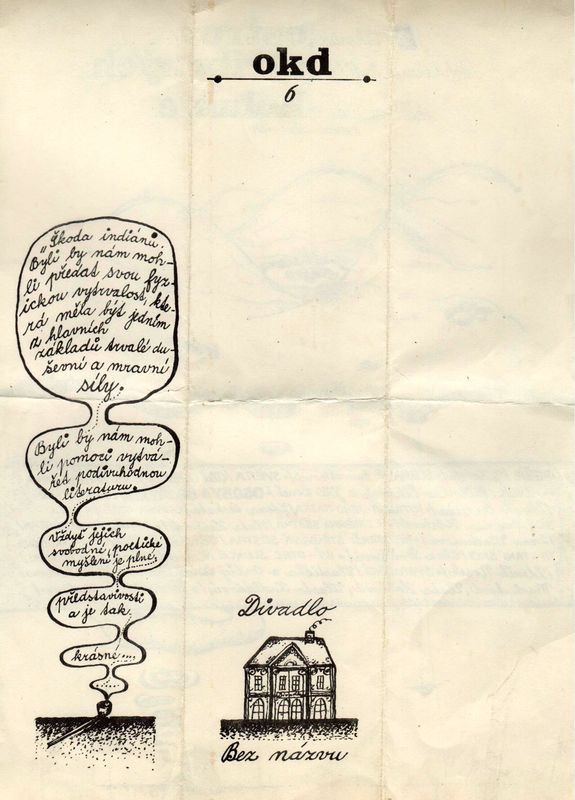 okd
6
„Škoda indiánů.
Byli by nám moh-
li předat svou fyz-
ickou vytrvalost, kte-
rá měla být jedním
z hlavních
základů trvalé du-
ševní a mravní
síly.
Byli by nám moh-
li pomoci vytvá-
řet podivuhodnou
literaturu.
Vždyť jejich
svobodné, poetické
myšlení je plné
představivosti
a je tak
krásné....
Divadlo
Bez názvu